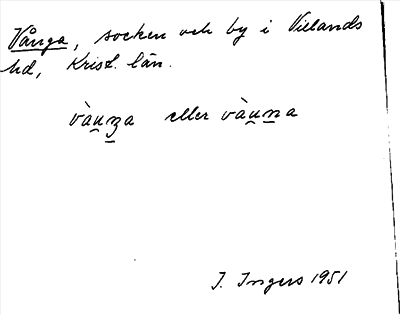 Vånga, socken och by i Villands
hd, Krist. län.
vàu̯nza eller vàu̯nna
I. Ingers 1951